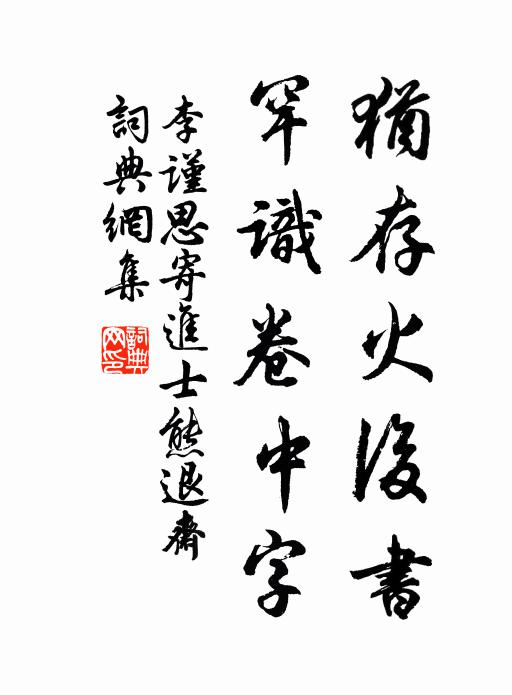 猶存火後書
罕識卷中字
李謹思寄進士熊退齋
詞典網集
詞典網印